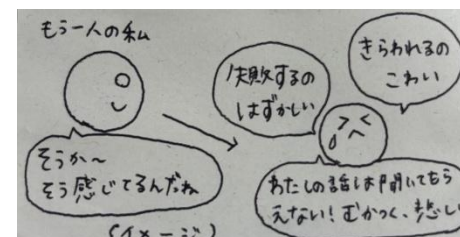 もう一人の私
そうか〜
そう感じてるんだね
失敗するの
はずかしい
きらわれるの
こわい
わたしの話は聞いてもら
えない!むかつく、悲しい
(イメージ)